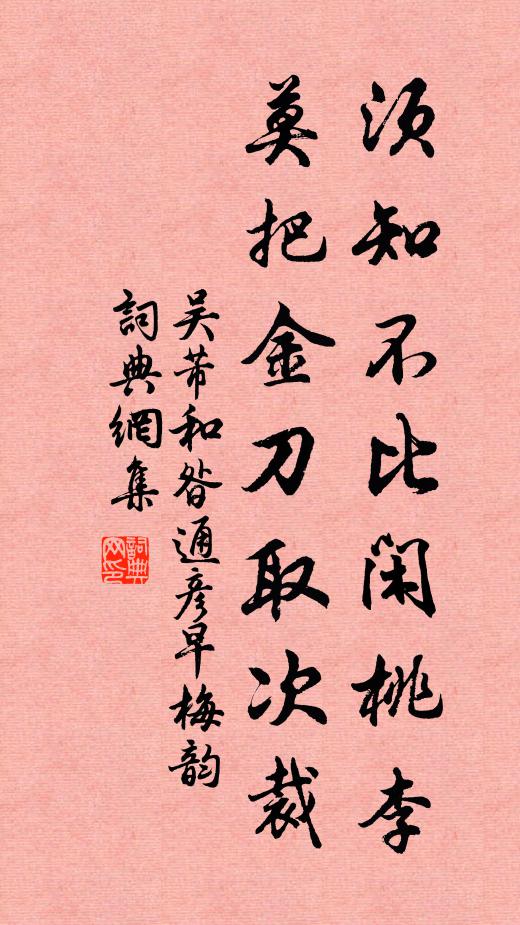 须知不比闲桃李
莫把金刀取次裁
吴芾和昝通彦早梅韵
詞典網集
詞典
网印